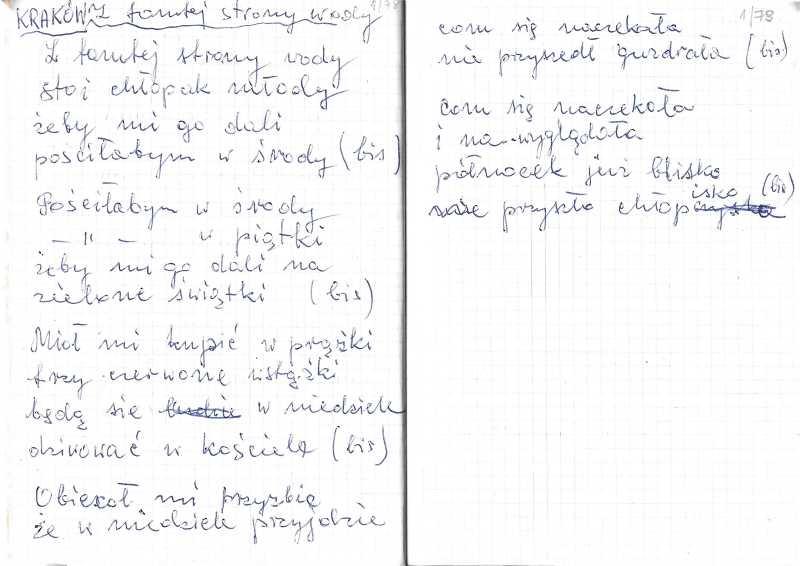 KRAKÓW Z tamtej strony wody 1/78
Z tamtej strony wody
stoi chłopak młody
żeby mi go dali
pościłabym w środy (bis)
Pościłabym w środy
— " — w piątki
żeby mi go dali na
zielone świątki (bis)
Mioł mi kupić w prążki
trzy czerwone wstążki
będą sie w niedziele
dziwować w kościele (bis)
Obiecoł mi przyzbię
że w niedziele przyjdzie
1/78
com się naczekała
nie przyszedł guzdrała (bis)
Com się naczekoła
i na-wyglądoła
północek już blisko
przyszło chłopisko (bis)